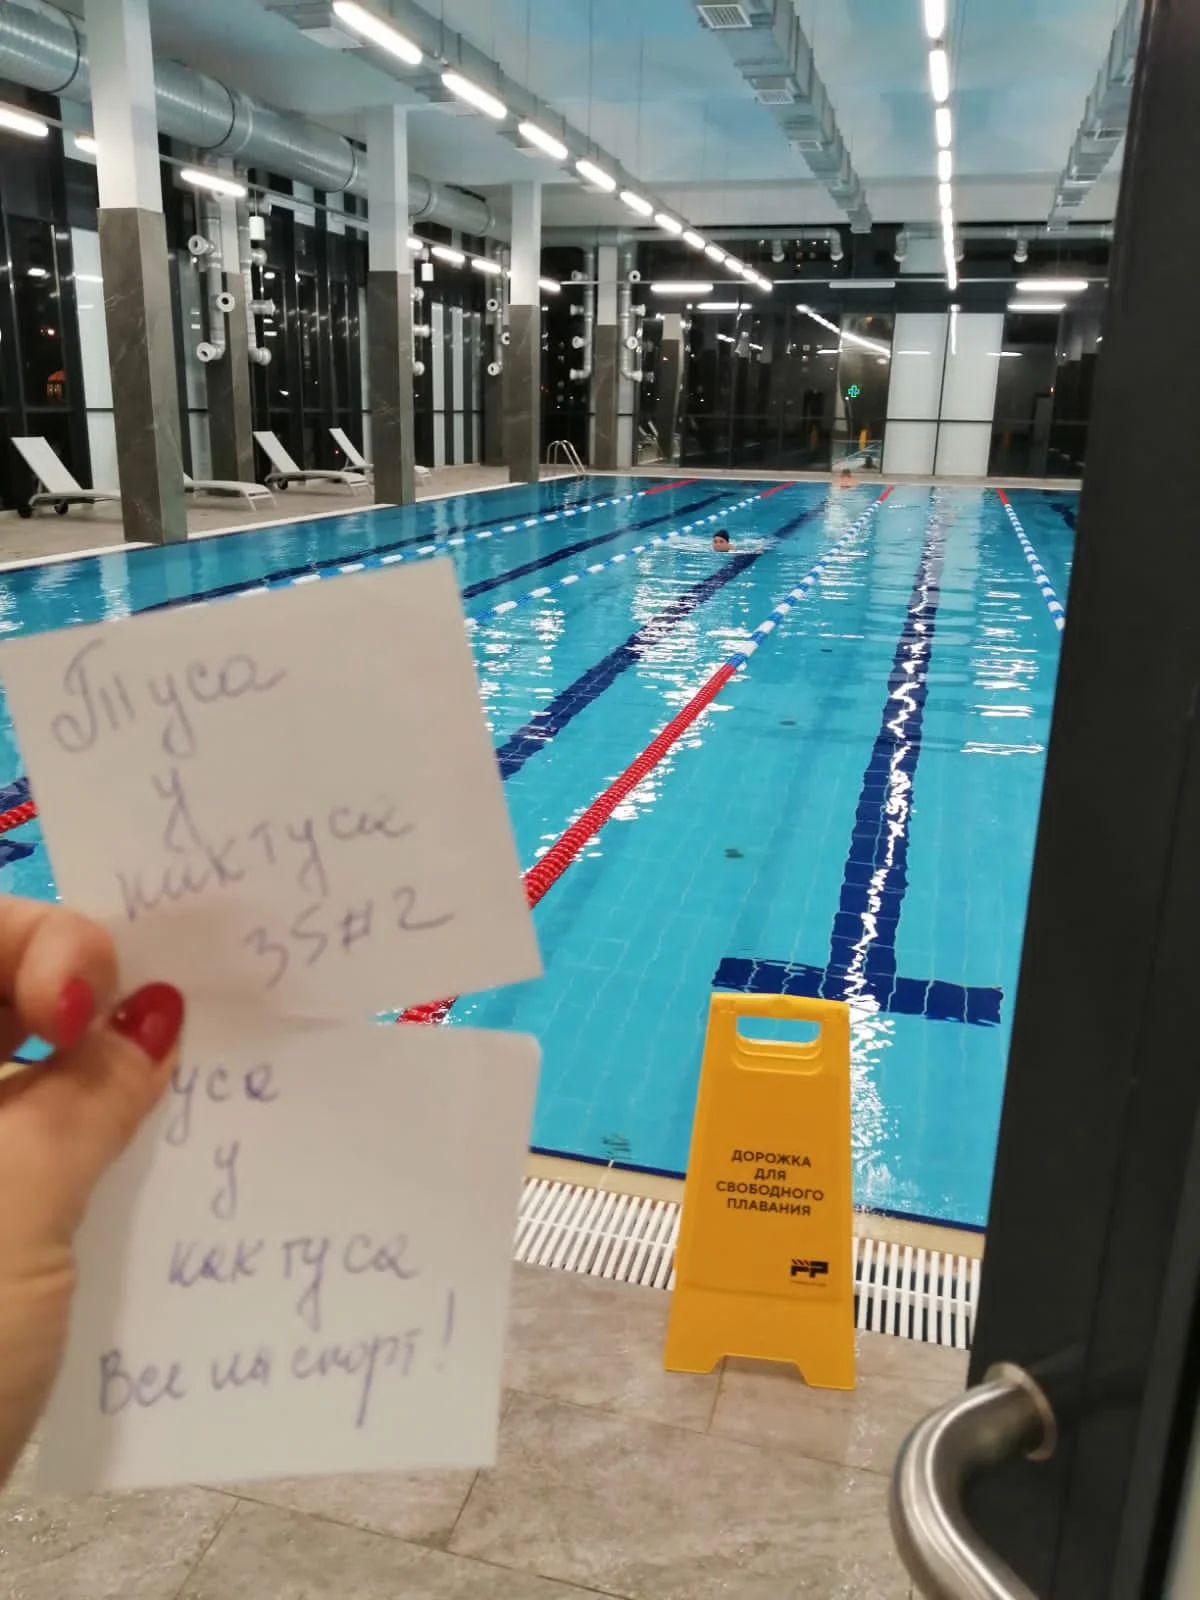 Туса
у
кактуса
35#2
уса
у
кактуса
Все на спорт!
ДОРОЖКА
ДЛЯ
СВОБОДНОГО
ПЛАВАНИЯ